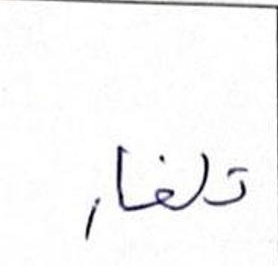 تلغار